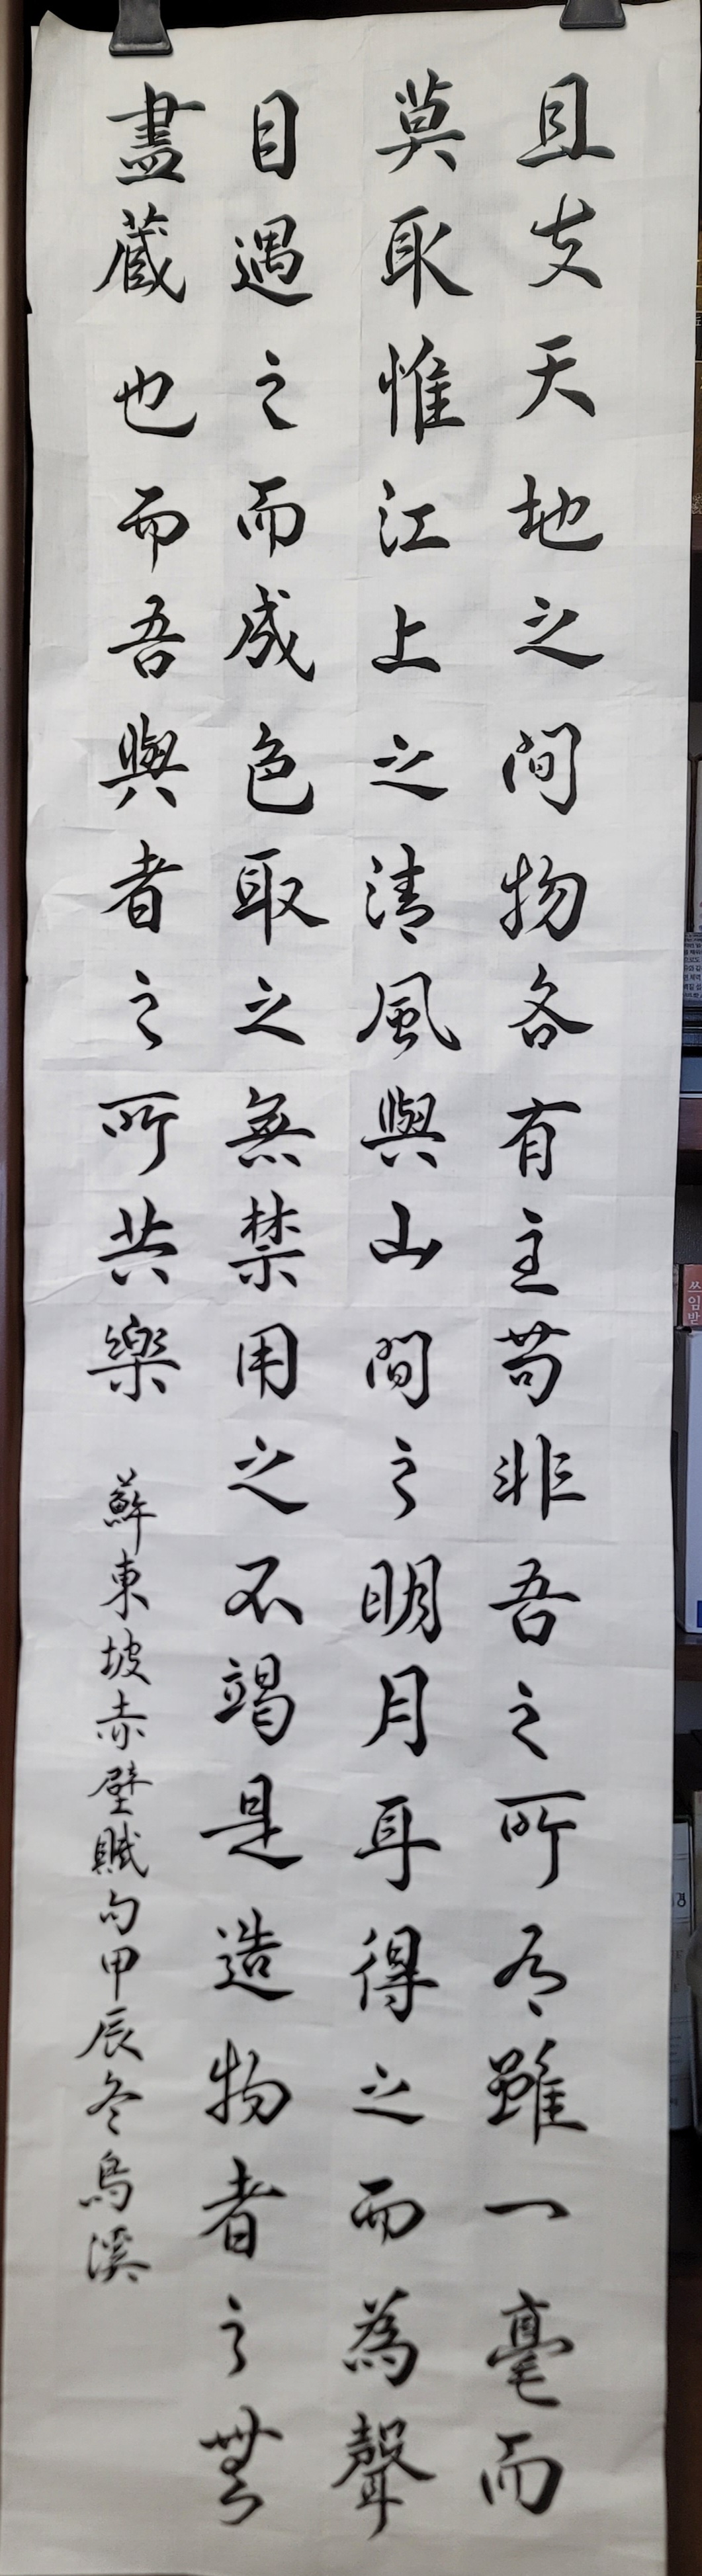 且夫天地之間物各有主苟非吾之所有雖一毫而
莫取惟江上之清風與山間之明月耳得之而為聲
目遇之而成色取之無禁用之不竭是造物者之無
盡藏也而吾與者之所共樂
蘇東坡赤壁賦句甲辰冬烏溪
쓰임받